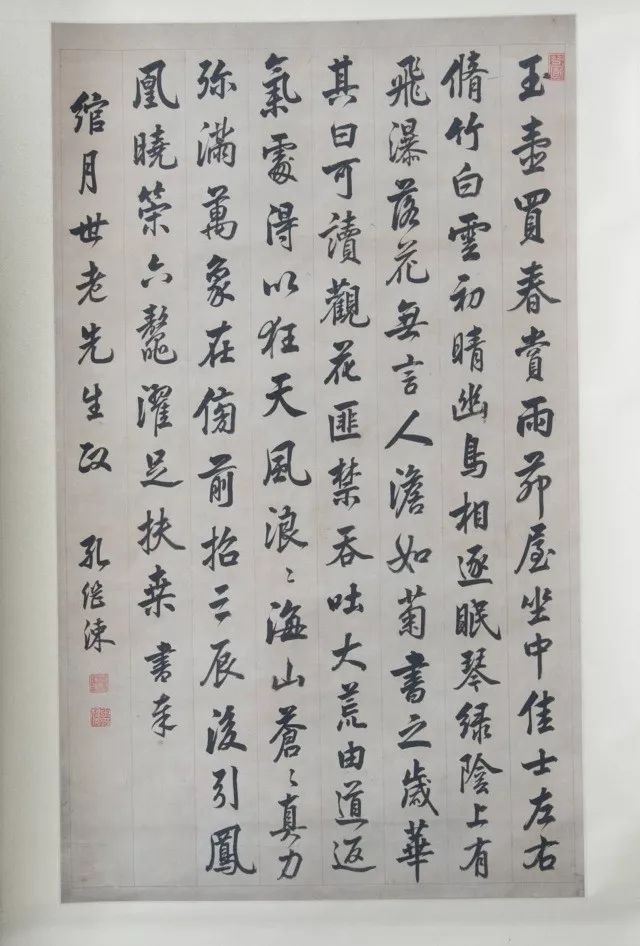 玉壺買春賞雨茆屋坐中佳士左右
脩竹白雲初晴幽鳥相逐眠琴緑陰上有
飛瀑落花無言人澹如菊書之歲華
其曰可讀觀花匪禁吞吐大荒由道返
氣處得以狂天風浪〻海山蒼〻真力
弥滿萬象在傍前招三辰後引鳳
凰曉策六鼇濯足扶桒 書奉
綰月世老先生政 孔继涑